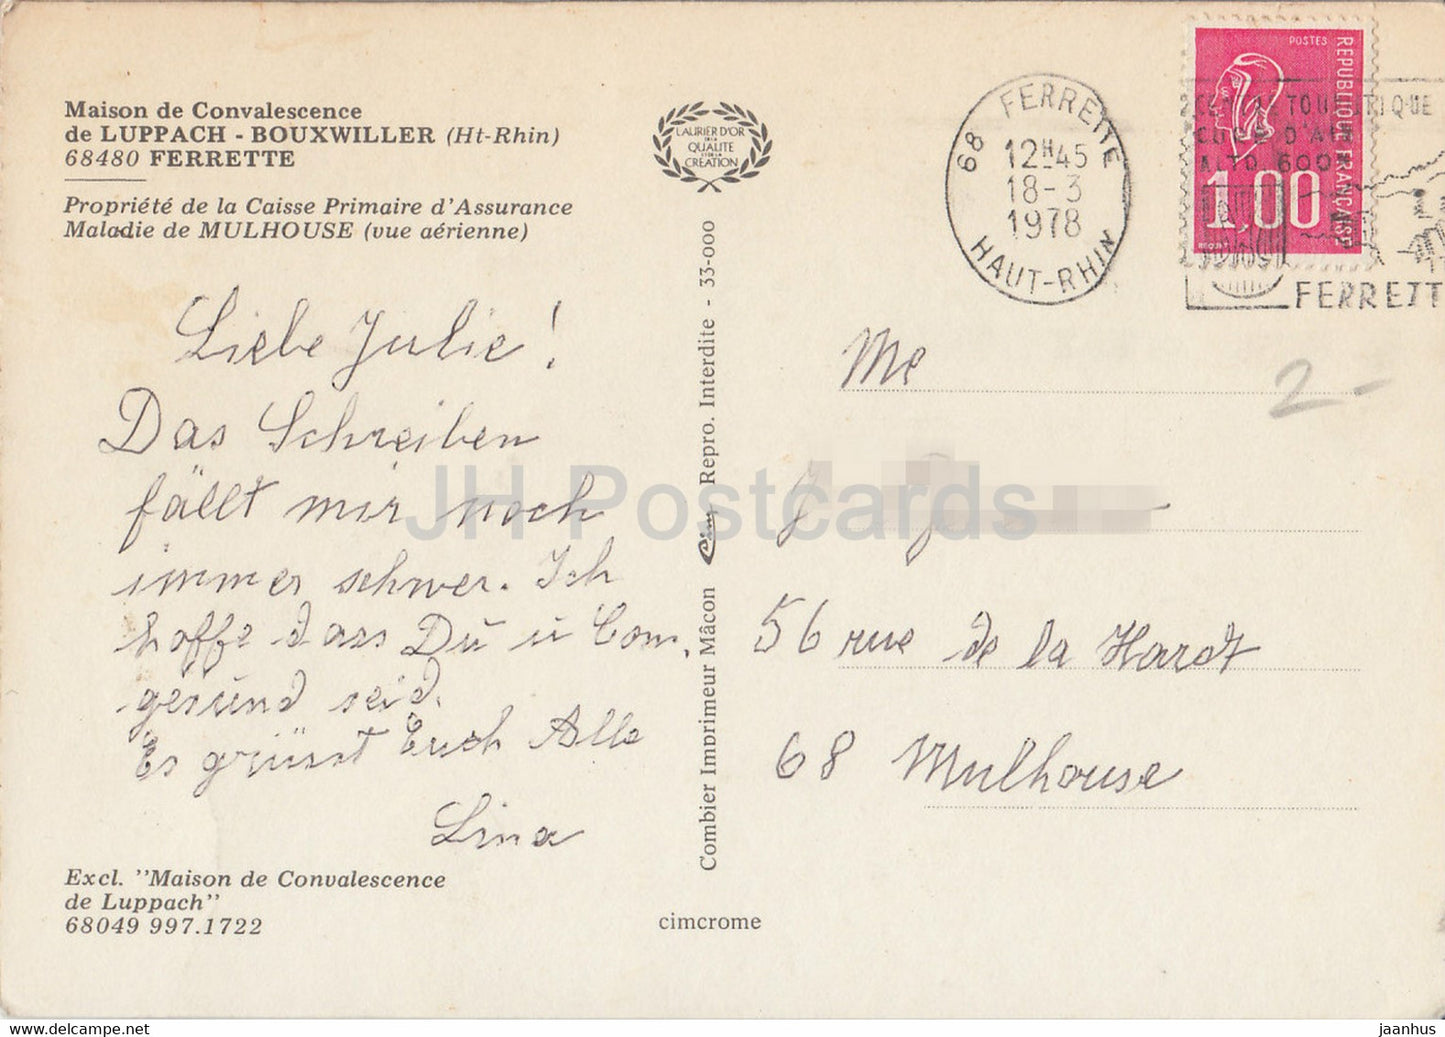 Maison de Convalescence
de LUPPACH - BOUXWILLER (Ht-Rhin)
68480 FERRETTE
Propriété de la Caisse Primaire d'Assurance
Maladie de MULHOUSE (vue aérienne)
Liebe Julie!
Das Schreiben
fällt mir noch
immer schwer. Ich
hoffe dass Du u
gesund seid.
Es grüsst Euch Alle
Lina
Excl. "Maison de Convalescence
de Luppach"
68049 997.1722
LAURIER D'OR
DE LA
QUALITE
ET DE LA
CREATION
Combier Imprimeur Mâcon Cim Repro. Interdite - 33-000
cimcrome
68 FERRETTE
12H45
18-3
1978
HAUT-RHIN
POSTES
REPUBLIQUE FRANÇAISE
1,00
TOURISTIQUE
D'AIR
ALTD. 600M
FERRETT
Me
2-
J
56 rue de la Hardt
68 Mulhouse
JH Postcards
https://jhpostcards.com
jaanhus